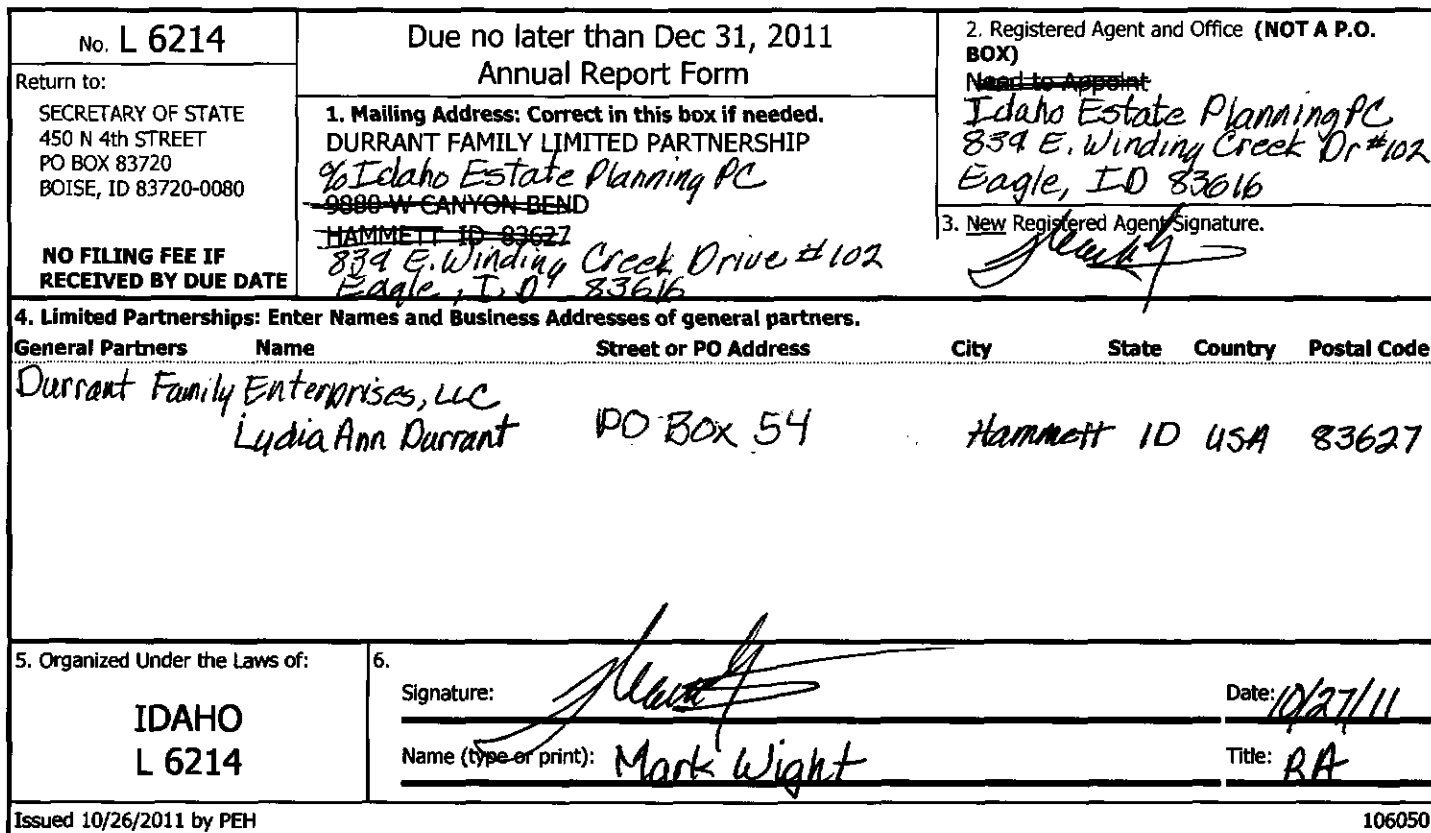 No. L 6214
Return to:
SECRETARY OF STATE
450 N 4th STREET
PO BOX 83720
BOISE, ID 83720-0080
NO FILING FEE IF
RECEIVED BY DUE DATE
Due no later than Dec 31, 2011
Annual Report Form
1. Mailing Address: Correct in this box if needed.
DURRANT FAMILY LIMITED PARTNERSHIP
% Idaho Estate Planning PC
9880 W CANYON BEND
HAMMETT ID 83627
839 E. Winding Creek Drive #102
Eagle, ID 83616
2. Registered Agent and Office (NOT A P.O.
BOX)
Need to Appoint
Idaho Estate Planning PC
839 E. Winding Creek Dr #102
Eagle, ID 83616
3. New Registered Agent Signature.
4. Limited Partnerships: Enter Names and Business Addresses of general partners.
General Partners Name Street or PO Address City State Country Postal Code
Durrant Family Enterprises, LLC
Lydia Ann Durrant PO Box 54 Hammett ID USA 83627
5. Organized Under the Laws of:
IDAHO
L 6214
6.
Signature: Date: 10/27/11
Name (type or print): Mark Wight Title: RA
Issued 10/26/2011 by PEH 106050